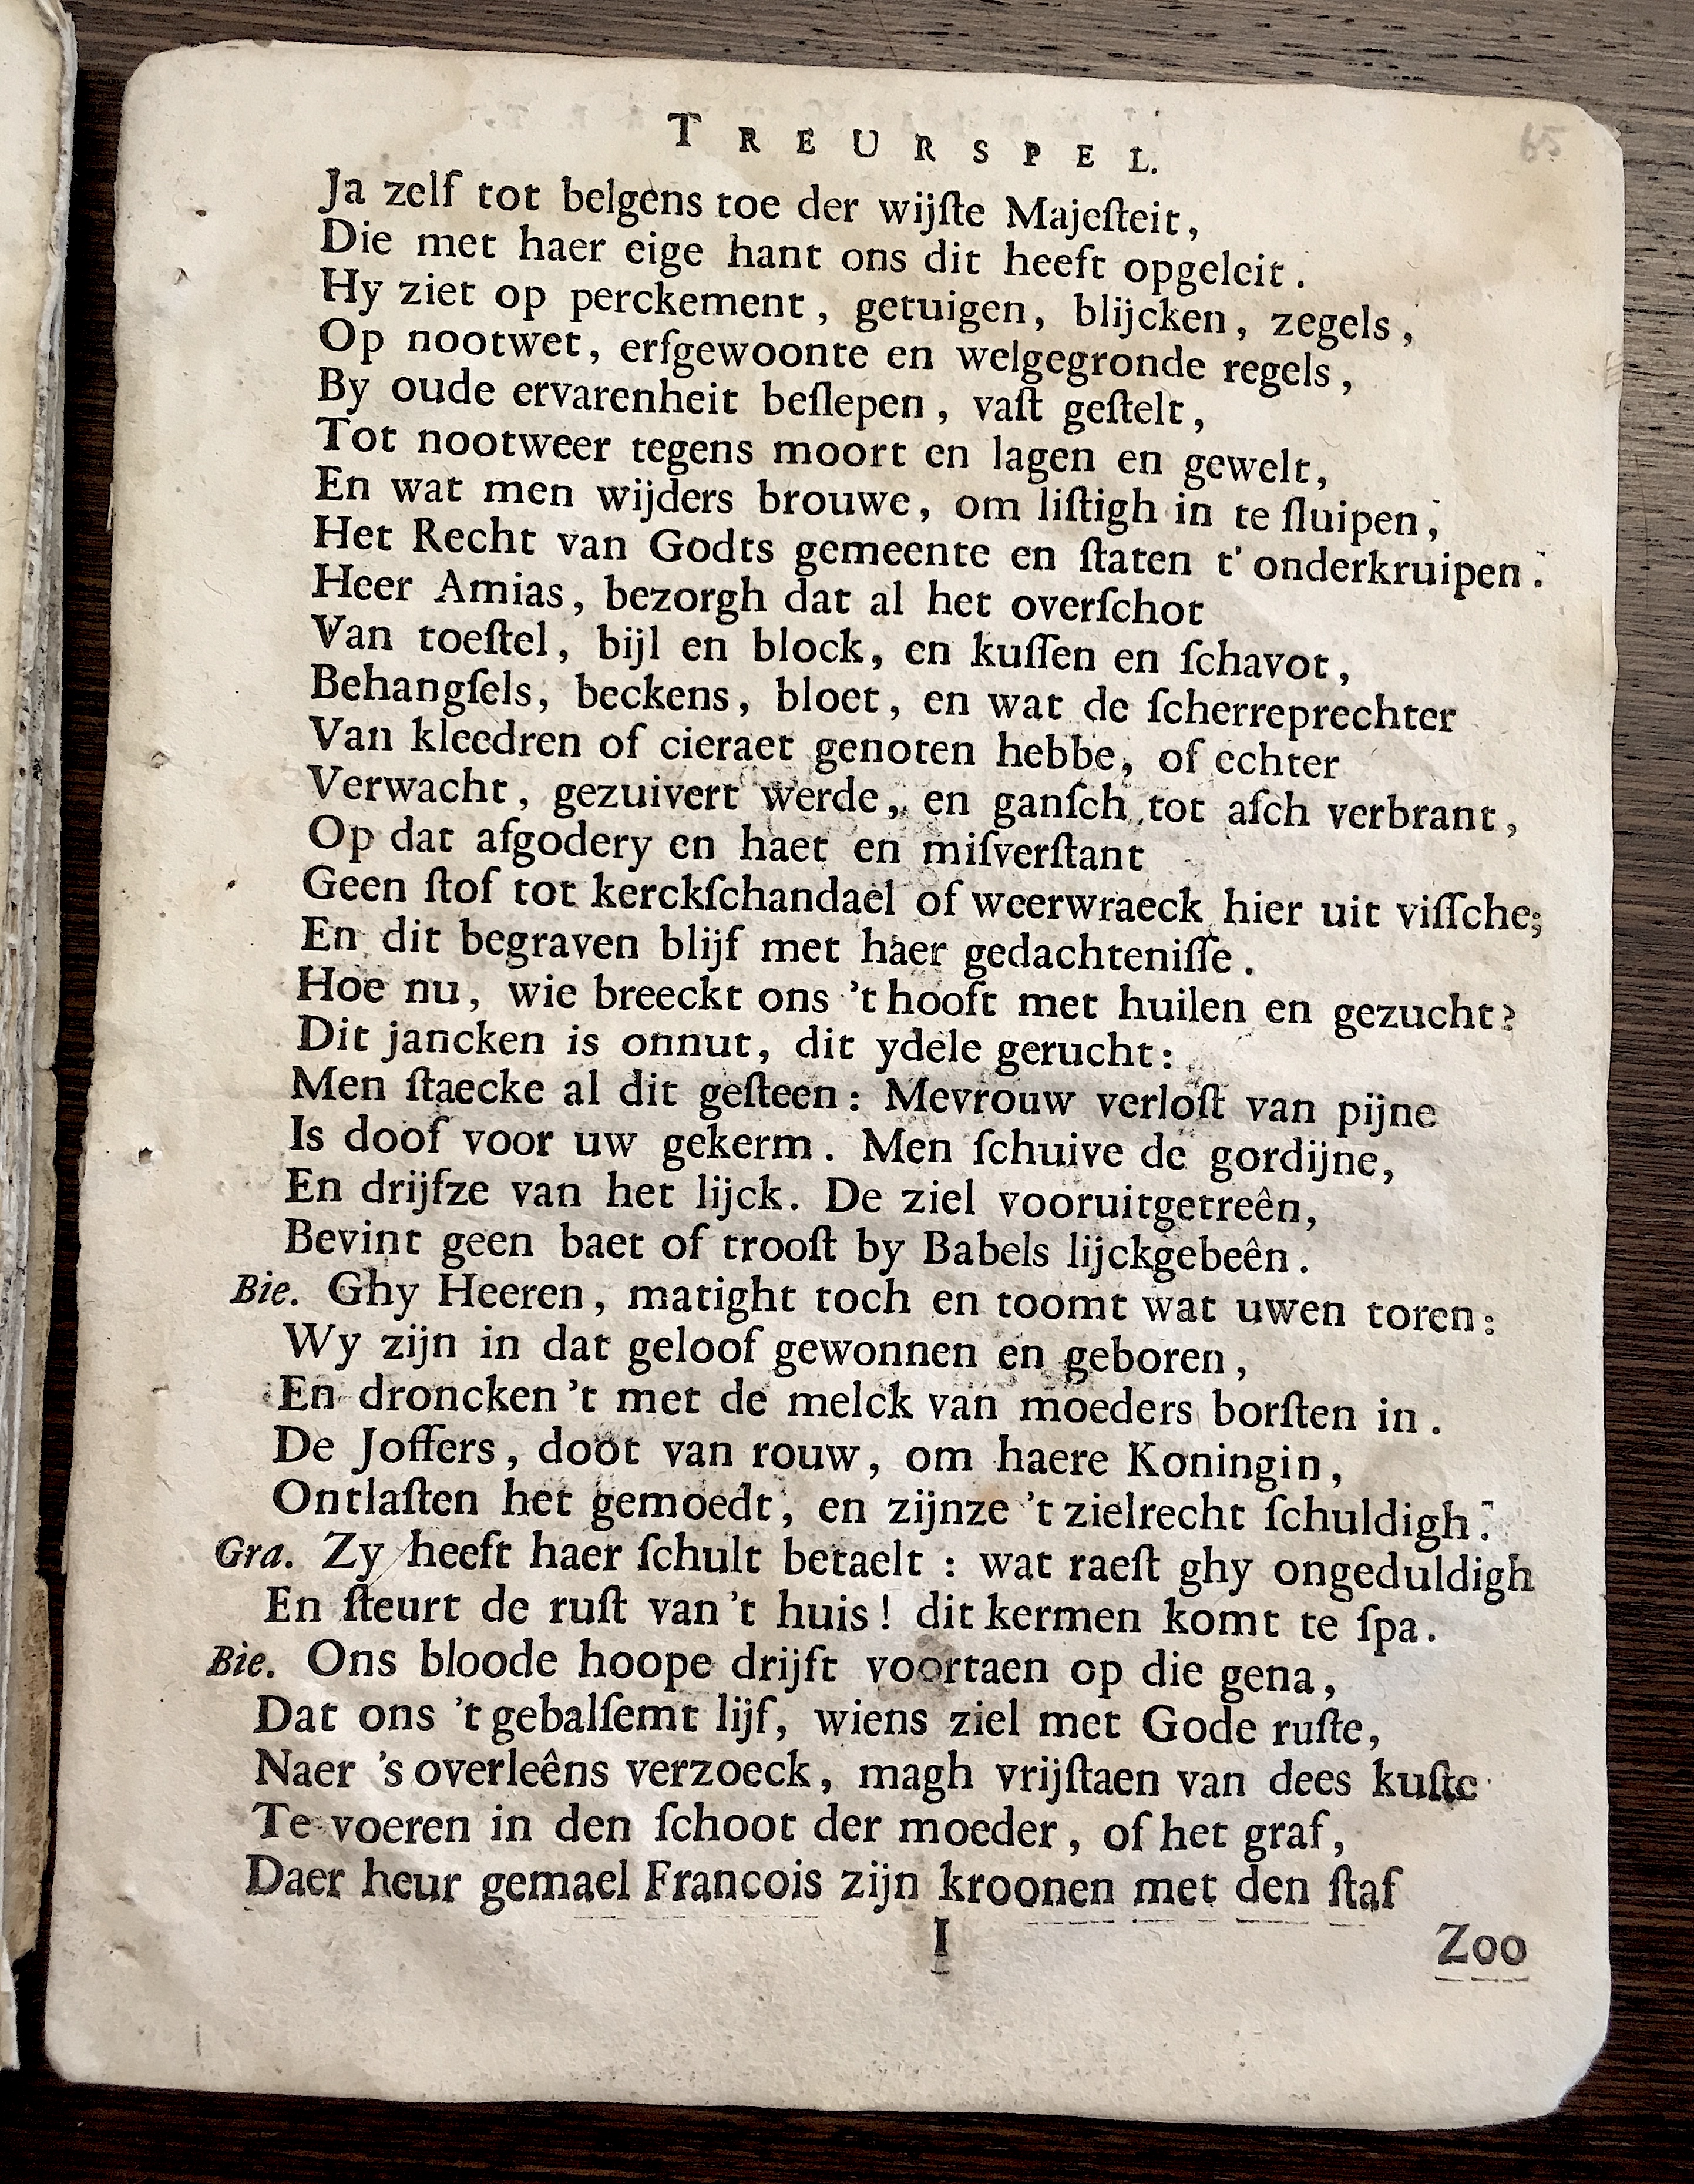 TREURSPEL.
65
Ja zelf tot belgens toe der wijſte Majeſteit,
Die met haer eige hant ons dit heeft opgeleit.
Hy ziet op perckement, getuigen, blijcken, zegels,
Op nootwet, erfgewoonte en welgegronde regels,
By oude ervarenheit beſlepen, vaſt geſtelt,
Tot nootweer tegens moort en lagen en gewelt,
En wat men wijders brouwe, om liſtigh in te ſluipen,
Het Recht van Godts gemeente en ſtaten t' onderkruipen.
Heer Amias, bezorgh dat al het overſchot
Van toeſtel, bijl en block, en kuſſen en ſchavot,
Behangſels, beckens, bloet, en wat de ſcherreprechter
Van kleedren of cieraet genoten hebbe, of echter
Verwacht, gezuivert werde, en ganſch tot aſch verbrant,
Op dat afgodery en haet en miſverſtant
Geen ſtof tot kerckſchandael of weerwraeck hier uit viſſche;
En dit begraven blijf met haer gedachteniſſe.
Hoe nu, wie breeckt ons 't hooft met huilen en gezucht?
Dit jancken is onnut, dit ydele gerucht:
Men ſtaecke al dit geſteen: Mevrouw verloſt van pijne
Is doof voor uw gekerm. Men ſchuive de gordijne,
En drijfze van het lijck. De ziel vooruitgetreên,
Bevint geen baet of trooſt by Babels lijckgebeên.
Bie. Ghy Heeren, matight toch en toomt wat uwen toren:
Wy zijn in dat geloof gewonnen en geboren,
En droncken 't met de melck van moeders borſten in.
De Joffers, doot van rouw, om haere Koningin,
Ontlaſten het gemoedt, en zijnze 't zielrecht ſchuldigh.
Gra. Zy heeft haer ſchult betaelt: wat raeſt ghy ongeduldigh
En ſteurt de ruſt van 't huis! dit kermen komt te ſpa.
Bie. Ons bloode hoope drijft voortaen op die gena,
Dat ons 't gebalſemt lijf, wiens ziel met Gode ruſte,
Naer 's overleêns verzoeck, magh vrijſtaen van dees kuſte
Te voeren in den ſchoot der moeder, of het graf,
Daer heur gemael Francois zijn kroonen met den ſtaf
I
Zoo